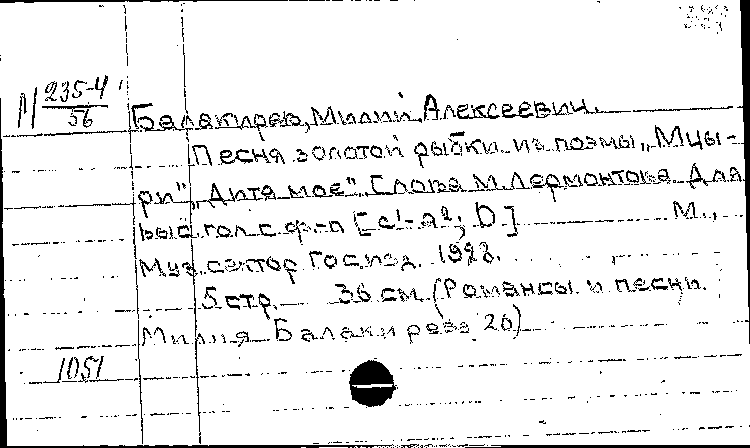 М 235-4
56
Балакирев, Милий Алексеевич.
Песня золотой рыбки из поэмы „Мцы-
ри", „Дитя мое". Слова М. Лермонтова. Для
выс. гол. с ф.-п [c¹-a²; D.] М.,
Муз. сектор Госизд. 1928.
5 стр. 36 см. (Романсы и песни
Милия Балакирева 26)
1051